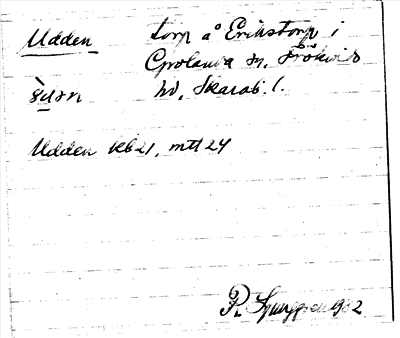 Udden torp å Erikstorp i
Grolanda sn, Frökinds
hd, Skarab. l.
Udden kb 21, mtl 24
R. Ljunggren 1962